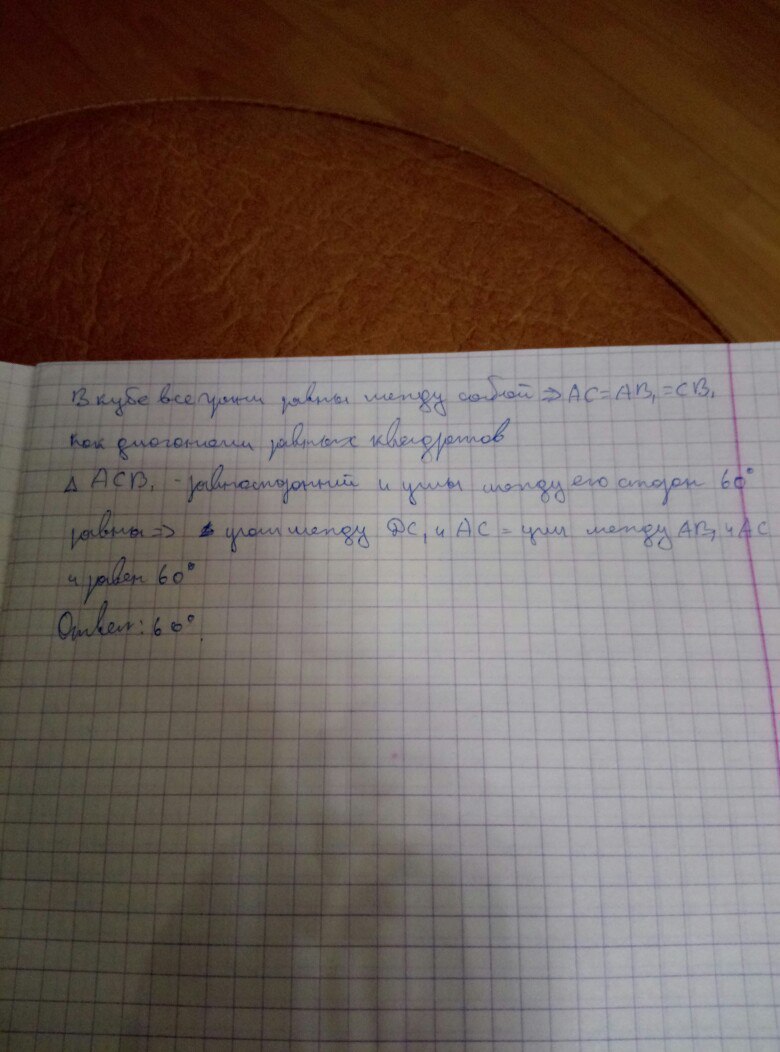 В кубе все грани равны между собой => AC=AB₁=CB₁
как диагонали равных квадратов
△ ACB₁ - равносторонний и углы между его сторон 60°
равны => угол между DC₁ и AC = угл между AB₁ и AC
и равен 60°
Ответ: 60°.